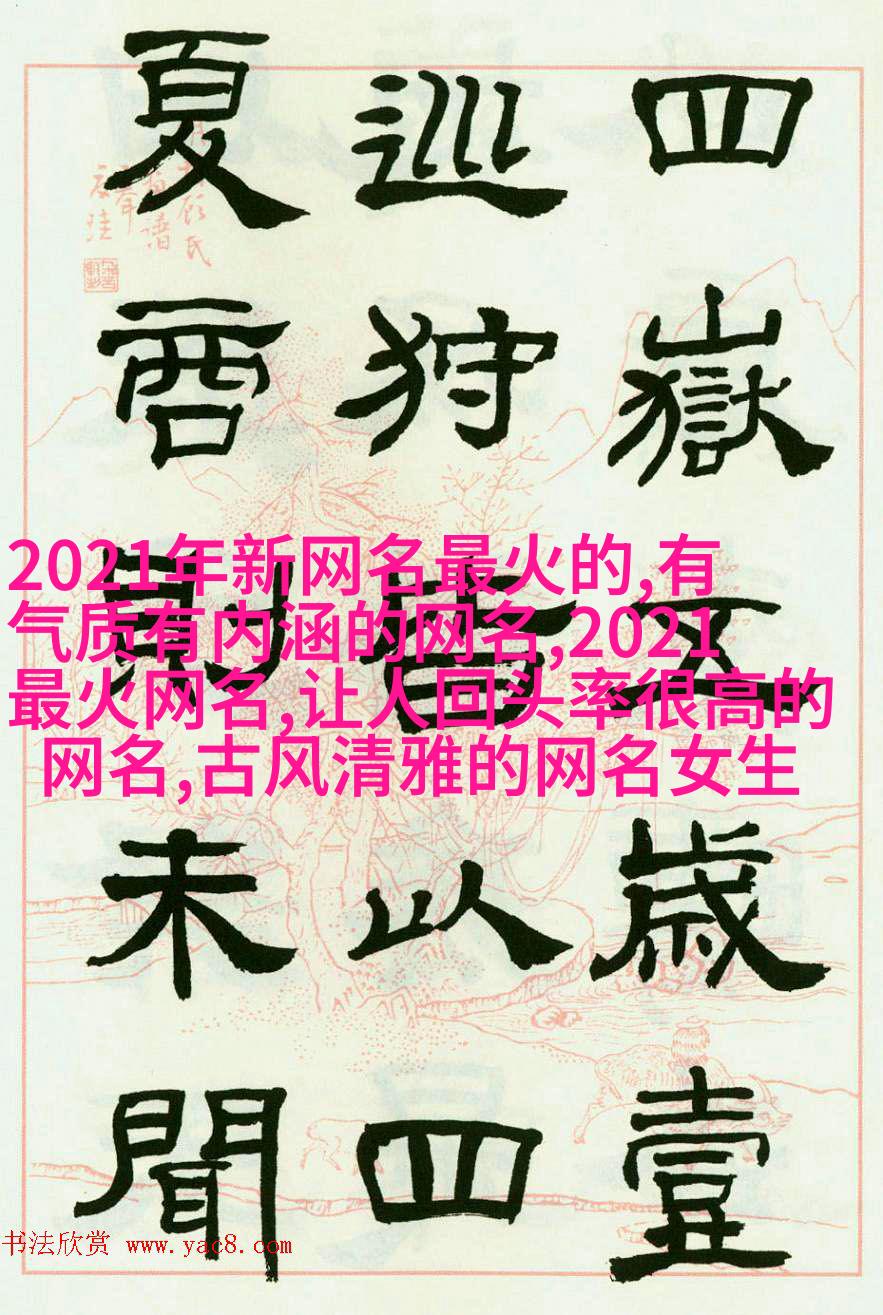 四嶽五歲壹
巡狩皆以四
夏商則未聞
2021年新网名最火的,有
气质有内涵的网名,2021
最火网名,让人回头率很高的
网名,古风清雅的网名女生
书法欣赏 www.yac8.com